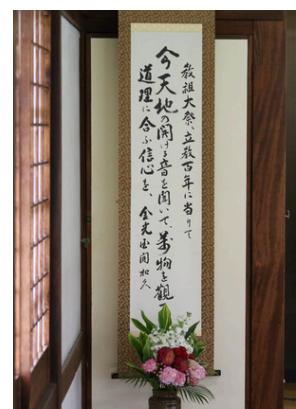 教祖大祭、立教百年に当りて
今天地の開ける音を聞いて、万物を観
道理に合ふ信心を、金光国開和久